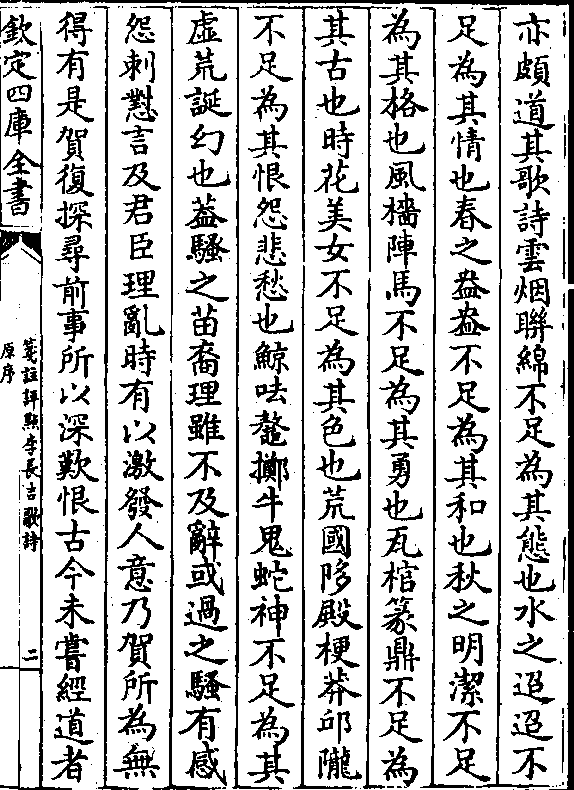 亦頗道其歌詩雲烟聯綿不足為其態也水之迢迢不
足為其情也春之盎盎不足為其和也秋之明潔不足
為其格也風檣陣馬不足為其勇也瓦棺篆鼎不足為
其古也時花美女不足為其色也荒國陊殿梗莽邱隴
不足為其恨怨悲愁也鯨呿鼇擲牛鬼蛇神不足為其
虛荒誕幻也葢騷之苗裔理雖不及辭或過之騷有感
怨刺懟言及君臣理亂時有以激發人意乃賀所為無
得有是賀復探尋前事所以深歎恨古今未嘗經道者
欽定四庫全書
箋註評點李長吉歌詩
原序
二